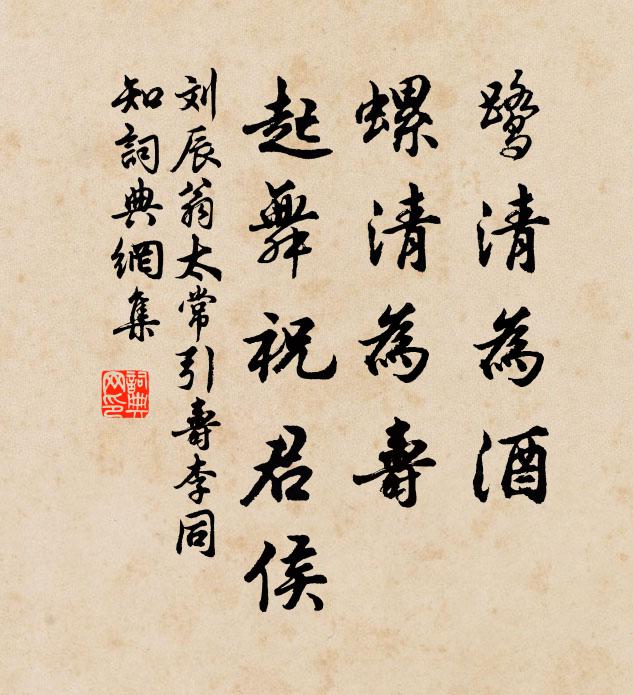 鹭清為酒
螺清為壽
起舞祝君侯
刘辰翁太常引壽李同
知詞典網集
詞典
网印